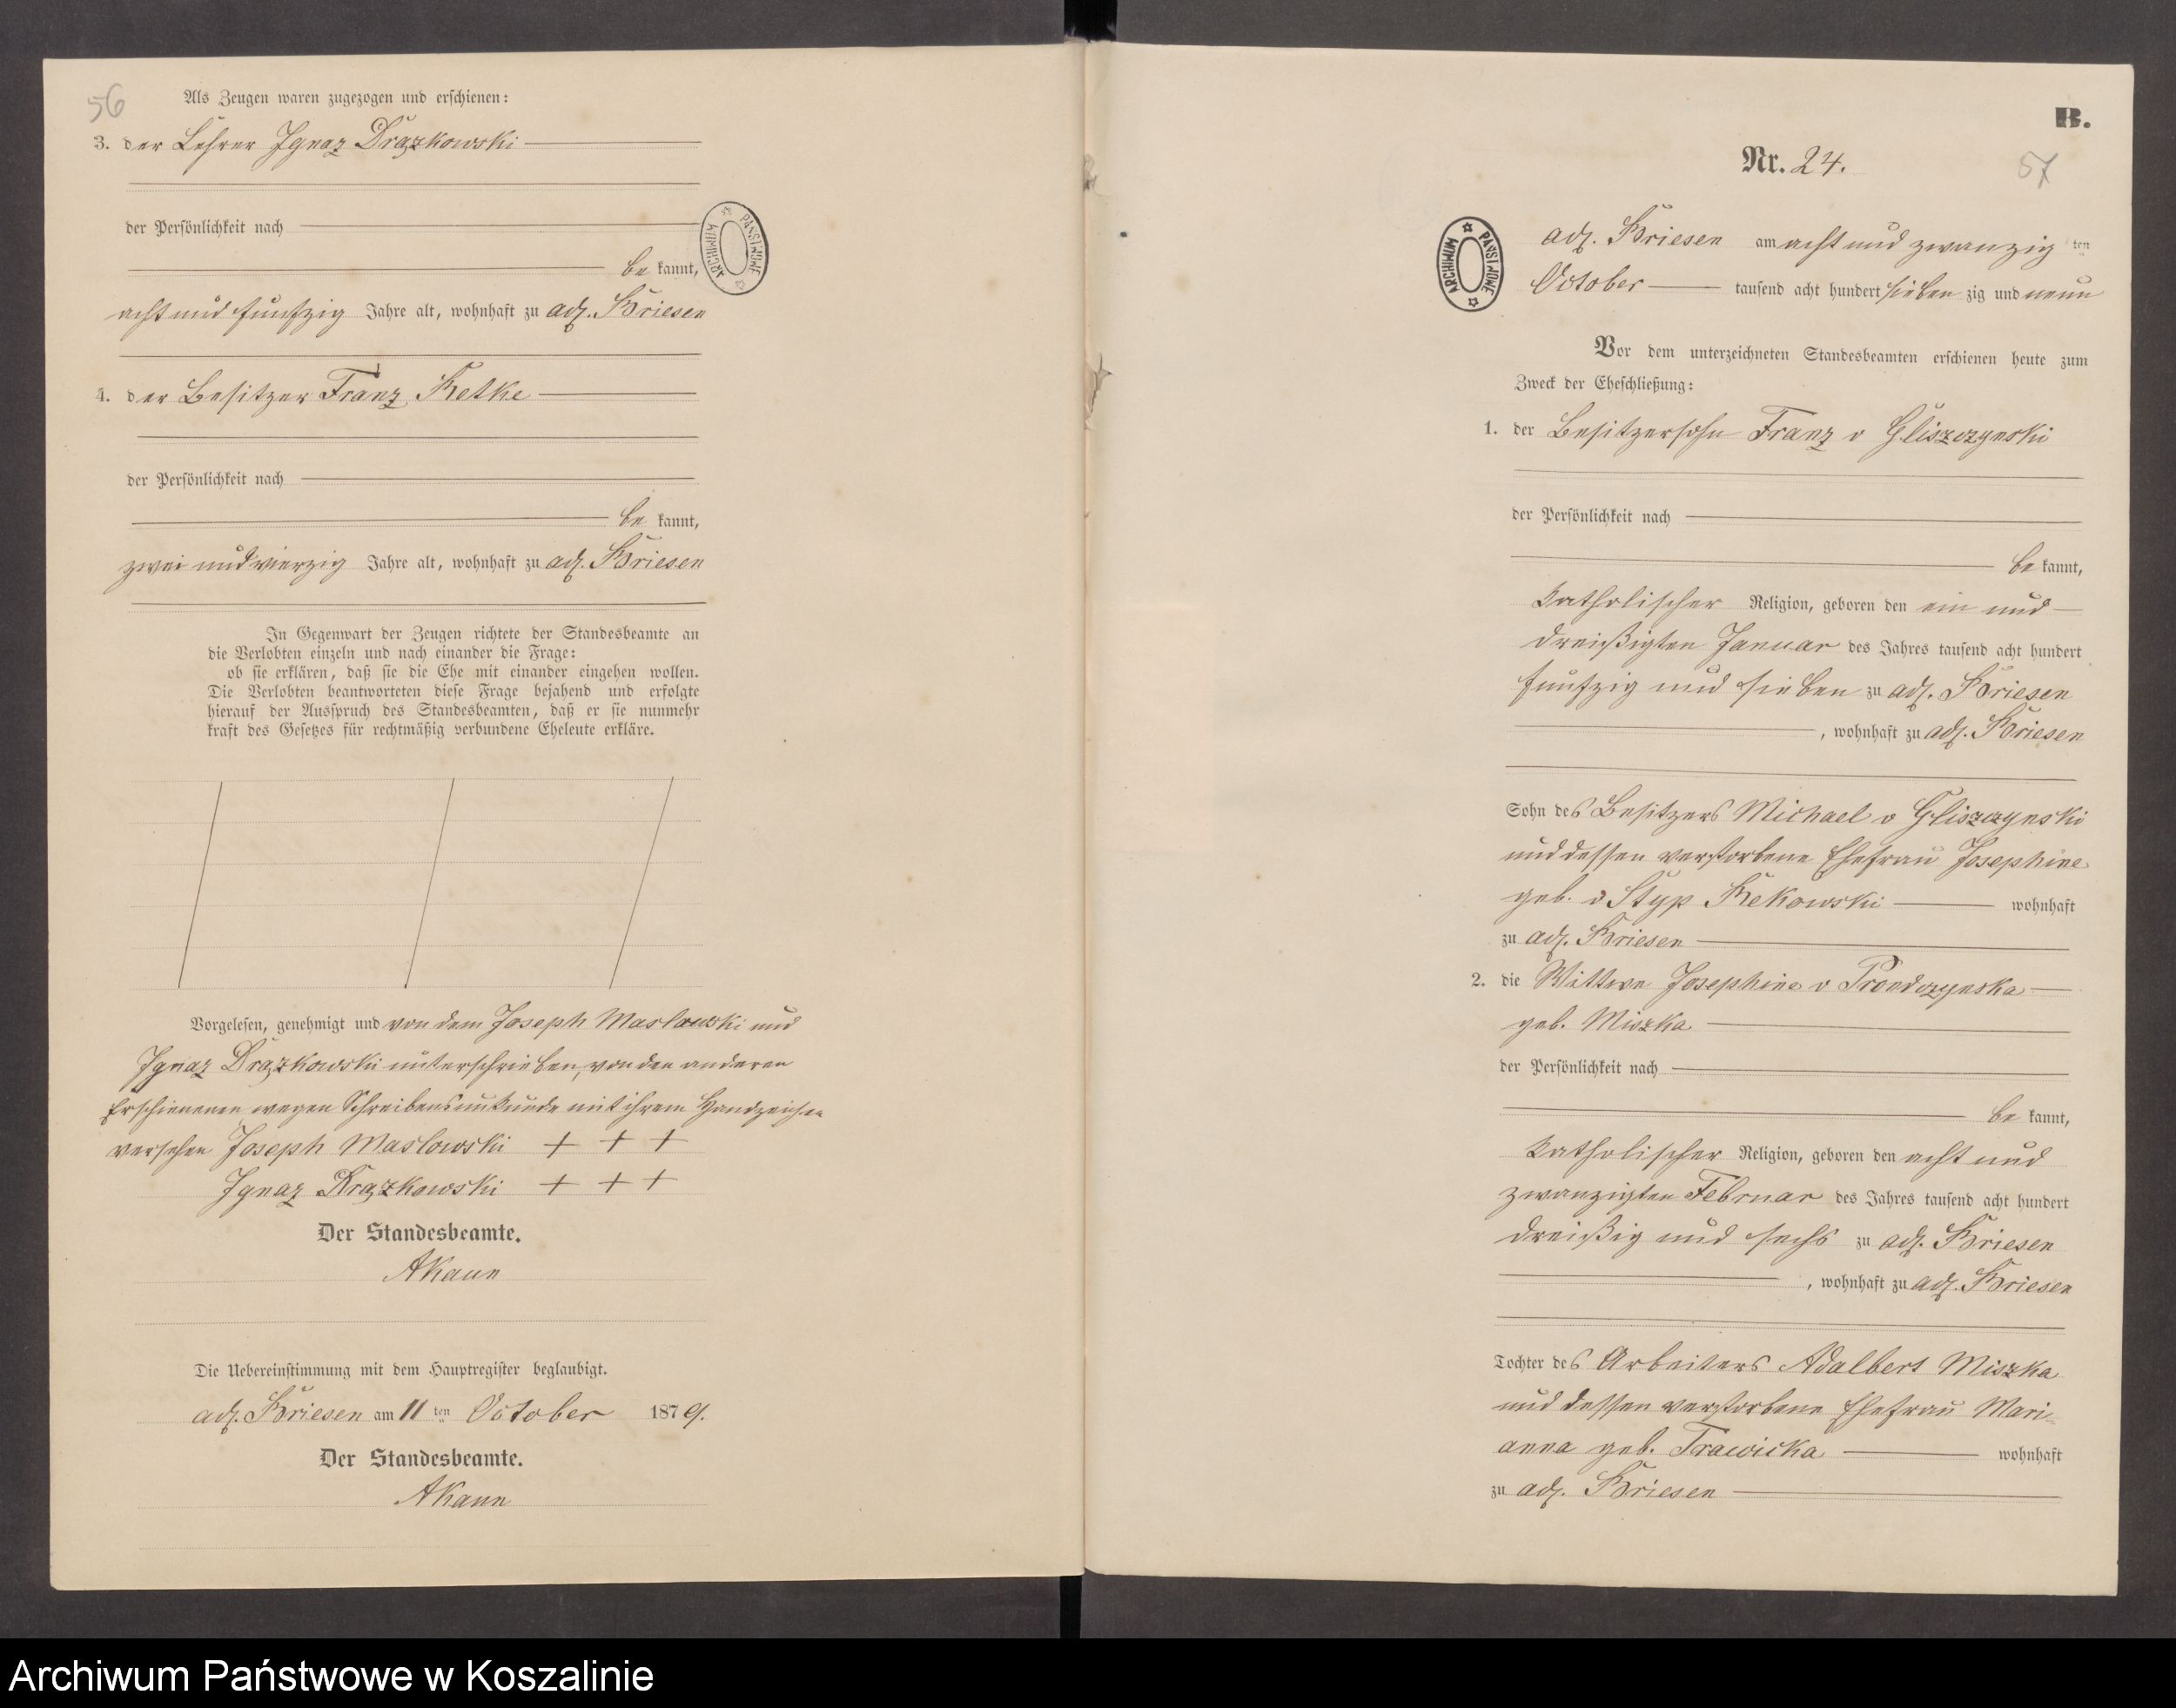 56
Als Zeugen waren zugezogen und erschienen:
3. der Lehrer Ignaz Drązkowski
der Persönlichkeit nach
be kannt,
acht und funfzig Jahre alt, wohnhaft zu adl. Briesen
4. der Besitzer Franz Retke
der Persönlichkeit nach
be kannt,
zwei und vierzig Jahre alt, wohnhaft zu adl. Briesen
In Gegenwart der Zeugen richtete der Standesbeamte an
die Verlobten einzeln und nach einander die Frage:
ob sie erklären, daß sie die Ehe mit einander eingehen wollen.
Die Verlobten beantworteten diese Frage bejahend und erfolgte
hierauf der Ausspruch des Standesbeamten, daß er sie nunmehr
kraft des Gesetzes für rechtmäßig verbundene Eheleute erkläre.
Vorgelesen, genehmigt und von dem Joseph Maslowski und
Ignaz Drązkowski unterschrieben, von den anderen
Erschienenen wegen Schreibensunkunde mit ihrem Handzeichen
versehen Joseph Maslowski + + +
Ignaz Drązkowski + + +
Der Standesbeamte.
AKaun
Die Uebereinstimmung mit dem Hauptregister beglaubigt.
adl. Briesen am 11 ten October 1879.
Der Standesbeamte.
AKaun
ARCHIWUM PAŃSTWOWE
B.
Nr. 24.
57
ARCHIWUM PAŃSTWOWE
adl. Briesen am acht und zwanzig ten
October tausend acht hundert sieben zig und neun
Vor dem unterzeichneten Standesbeamten erschienen heute zum
Zweck der Eheschließung:
1. der Besitzersohn Franz v Gliszczynski
der Persönlichkeit nach
be kannt,
katholischer Religion, geboren den ein und
dreißigten Januar des Jahres tausend acht hundert
funfzig und sieben zu adl. Briesen
, wohnhaft zu adl. Briesen
Sohn des Besitzers Michael v Gliszczynski
und dessen verstorbene Ehefrau Josephine
geb. v Styp Rekowski wohnhaft
zu adl. Briesen
2. die Wittwe Josephine v Prondzynska
geb. Miszka
der Persönlichkeit nach
be kannt,
katholischer Religion, geboren den acht und
zwanzigten Februar des Jahres tausend acht hundert
dreißig und sechs zu adl. Briesen
, wohnhaft zu adl. Briesen
Tochter des Arbeiters Adalbert Miszka
und dessen verstorbene Ehefrau Mari-
anna geb. Trawicka wohnhaft
zu adl. Briesen
Archiwum Państwowe w Koszalinie